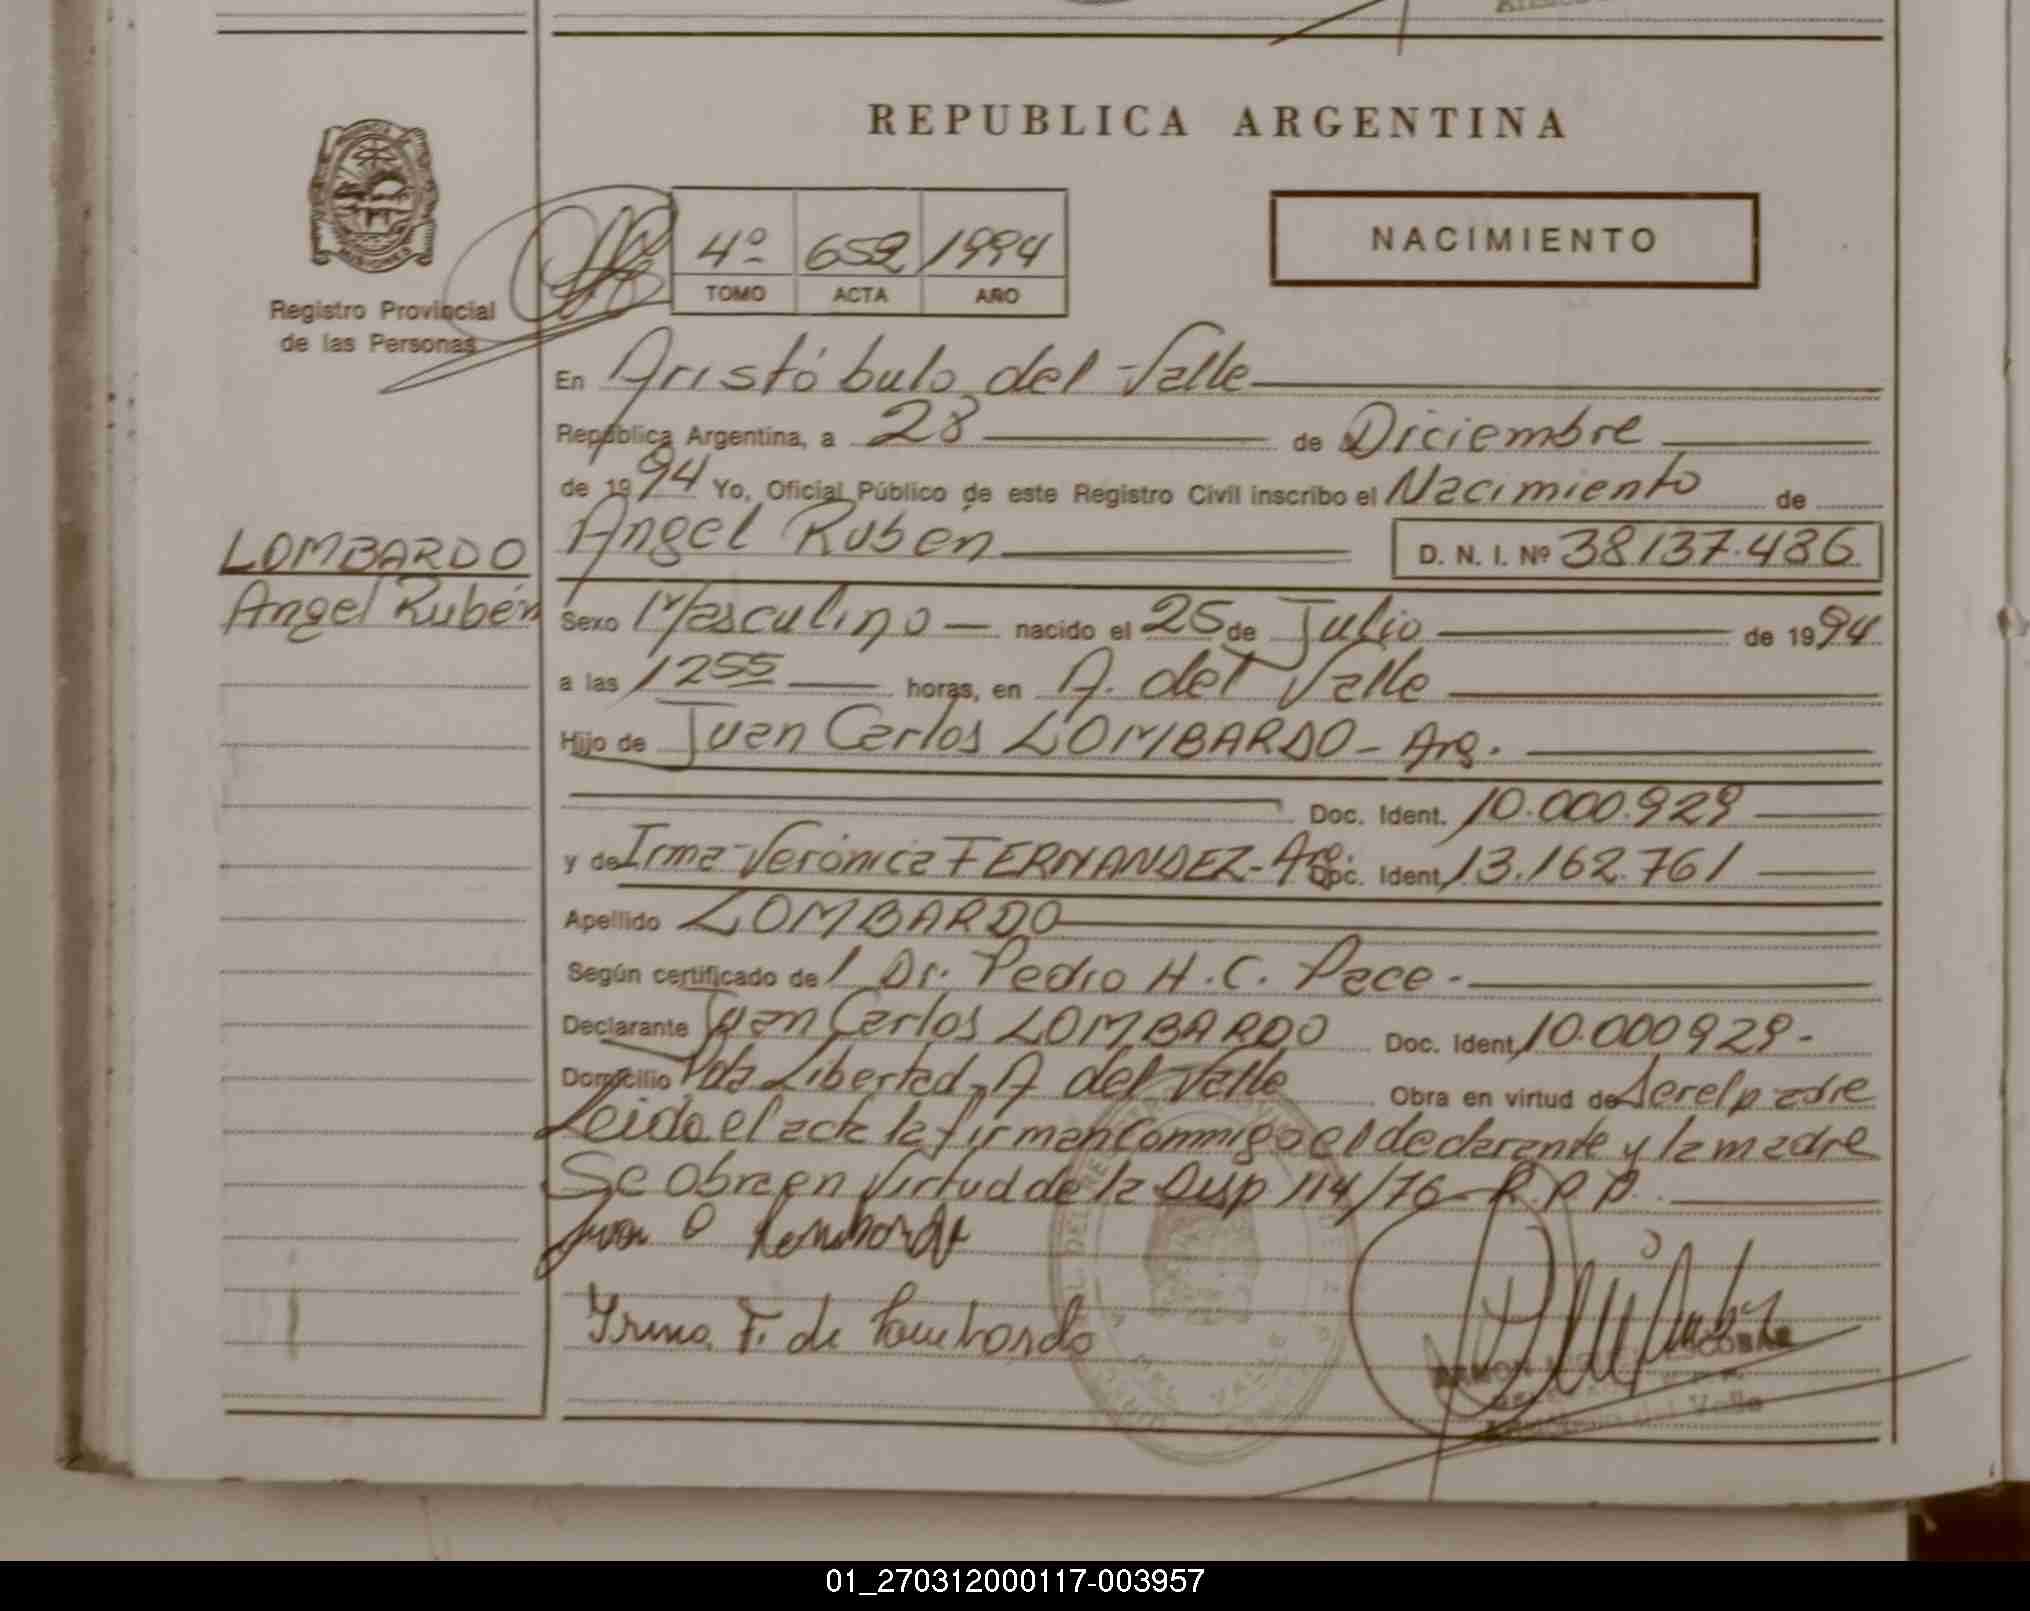 REPUBLICA ARGENTINA
NACIMIENTO
4º 652 1994
TOMO ACTA AÑO
Registro Provincial
de las Personas
En Aristóbulo del Valle
República Argentina, a 28 de Diciembre
de 1994 Yo, Oficial Público de este Registro Civil inscribo el Nacimiento de
Angel Ruben D. N. I. Nº 38137.436
LOMBARDO
Angel Rubén
Sexo Masculino — nacido el 25 de Julio de 1994
a las 1255 horas, en A. del Valle
Hijo de Juan Carlos LOMBARDO - Arg.
Doc. Ident. 10.000.929
y de Irma Verónica FERNANDEZ - Arg. Doc. Ident. 13.162.761
Apellido LOMBARDO
Según certificado del Dr. Pedro H. C. Pace -
Declarante Juan Carlos LOMBARDO Doc. Ident. 10.000929-
Domicilio Pda Libertad, A del Valle Obra en virtud de ser el padre
Leida el acta la firman conmigo el declarante y la madre
Se obra en virtud de la Disp 114/76 R.P.P.
Juan C Lombardo
Irma F. de Lombardo
del Valle
01_270312000117-003957